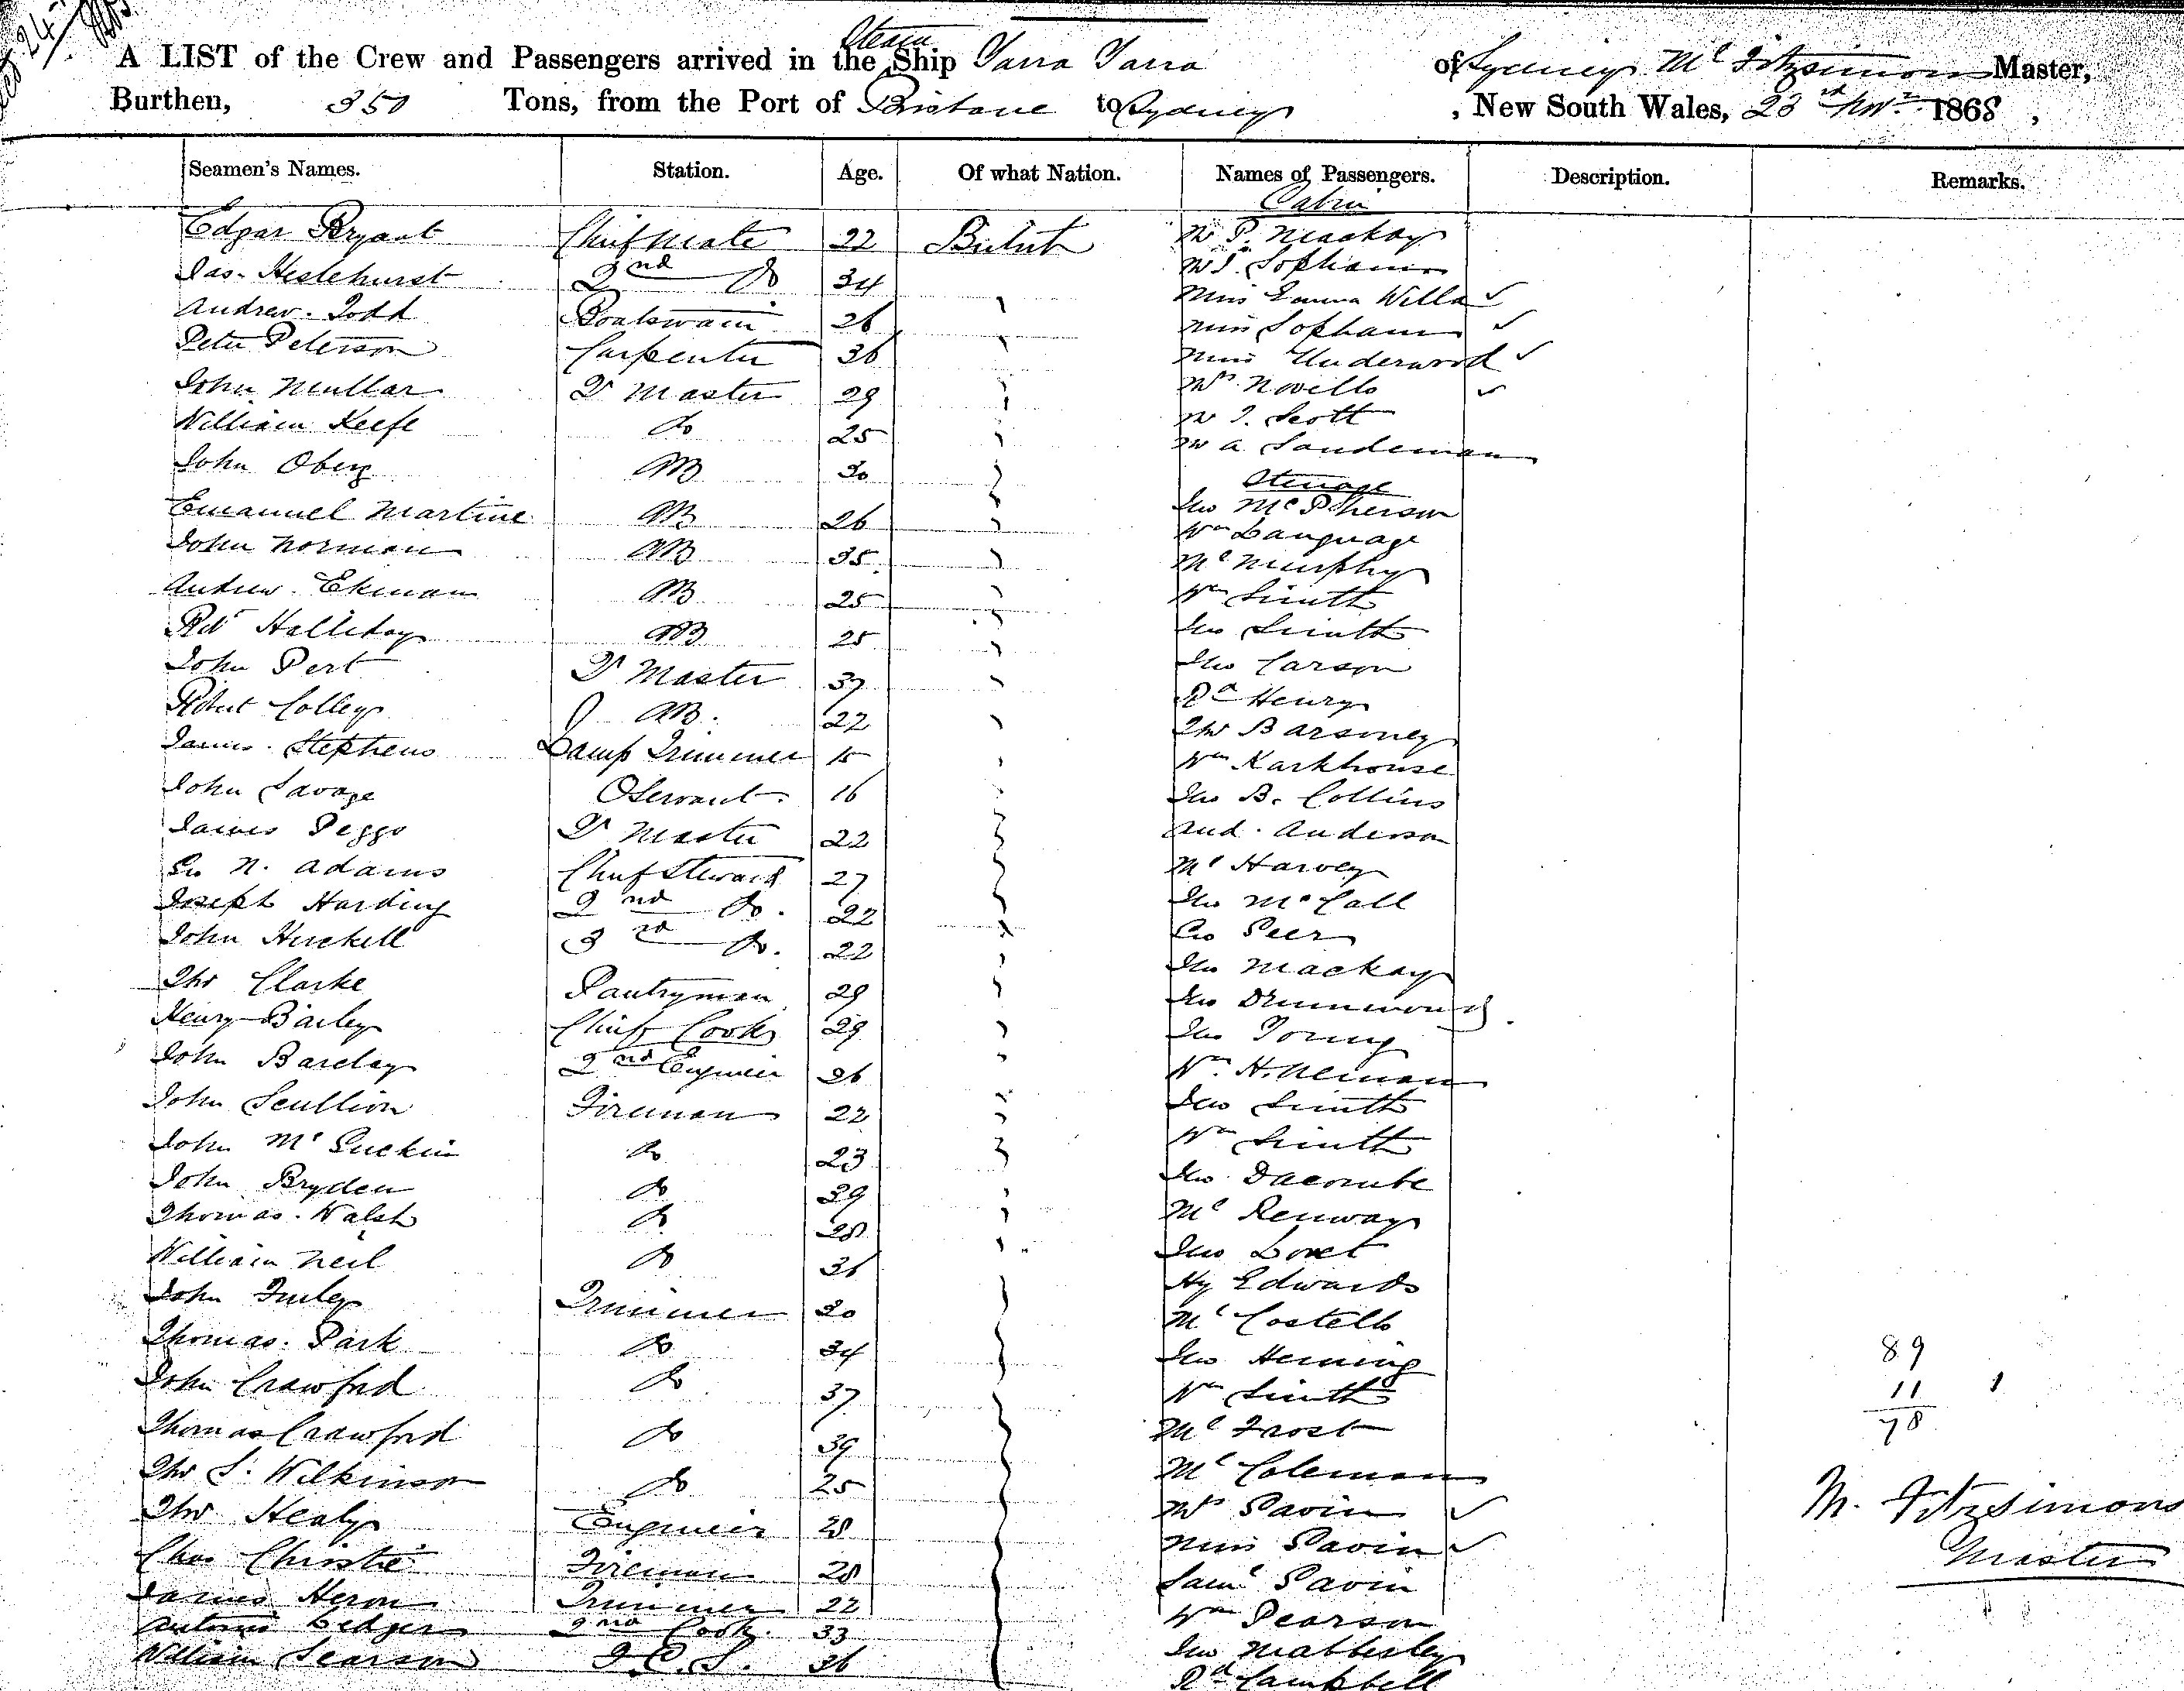 Steam
A LIST of the Crew and Passengers arrived in the Ship Yarra Yarra of Sydney Mc Fitzsimons Master,
Burthen, 350 Tons, from the Port of Brisbane to Sydney, New South Wales, 23rd Novr. 1868,
Seamen's Names. Station. Age. Of what Nation. Names of Passengers. Description. Remarks.
Cabin
Edgar Bryant Chief Mate 22 British Mr P. Mackay
Jas. Heslehurst 2nd Do 34
Andrew Todd Boatswain 26 Miss Emma Wills
Peter Peterson Carpenter 36 Miss Sopham
John Mullar Qr Master 29 Miss Underwood
William Keefe Do 25 Mrs Novello
John Oberg AB 30 Mr T. Scott
Emanuel Martine AB 26 Mr A Sandeman
Steerage
John Norman AB 35 Jno McPherson
Andrew Ekman AB 25 Wm Language
Rd Halliday AB 25 Mr Murphy
John Pert Qr Master 37 Wm Smith
Robert Colley AB. 22 Jno Smith
James Stephens Lamp Trimmer 15 Jno Carson
John Savage O Servant 16 Rd Henry
James Peggo Qr Master 22 Thos Barsmey
Geo N. Adams Chief Steward 27 Wm Karkhouse
Joseph Harding 2nd Do. 22 Jno B. Collins
John Huckell 3rd Do. 22 And. Anderson
Thos Clarke Pantryman 29 Mr Harvey
Henry Bailey Chief Cook 29 Jno McCall
John Barclay 2nd Engineer 26 Geo Peer
John Scullion Fireman 22 Jno Mackay
John McGuckin Do 23 Jno Drummond
John Bryden Do 39 Jno Young
Thomas Walsh Do 28 Wm H. Neiman
William Neil Do 36 Jno Smith
John Turley Trimmer 20 Wm Smith
Thomas Park Do 34 Jno Dacombe
John Crawford Do 37 Mr Kenway
Thomas Crawford Do 39 Jno
Thos S. Wilkinson Do 25 Hy Edwards
Thos Healy Engineer 28 Mr Costello
Chas Christie Fireman 28 Jno Heming
James Heron Trimmer 22 Wm Smith
Antonio Ledger 2nd Cook. 33 Mr Frost
William Searson F.C.S. 36 Mr Coleman
Mrs Pavin
Miss Pavin
Saml Pavin
Wm Pearson
Jno Mabberley
Rd Campbell
89
11
78
M. Fitzsimons
Master